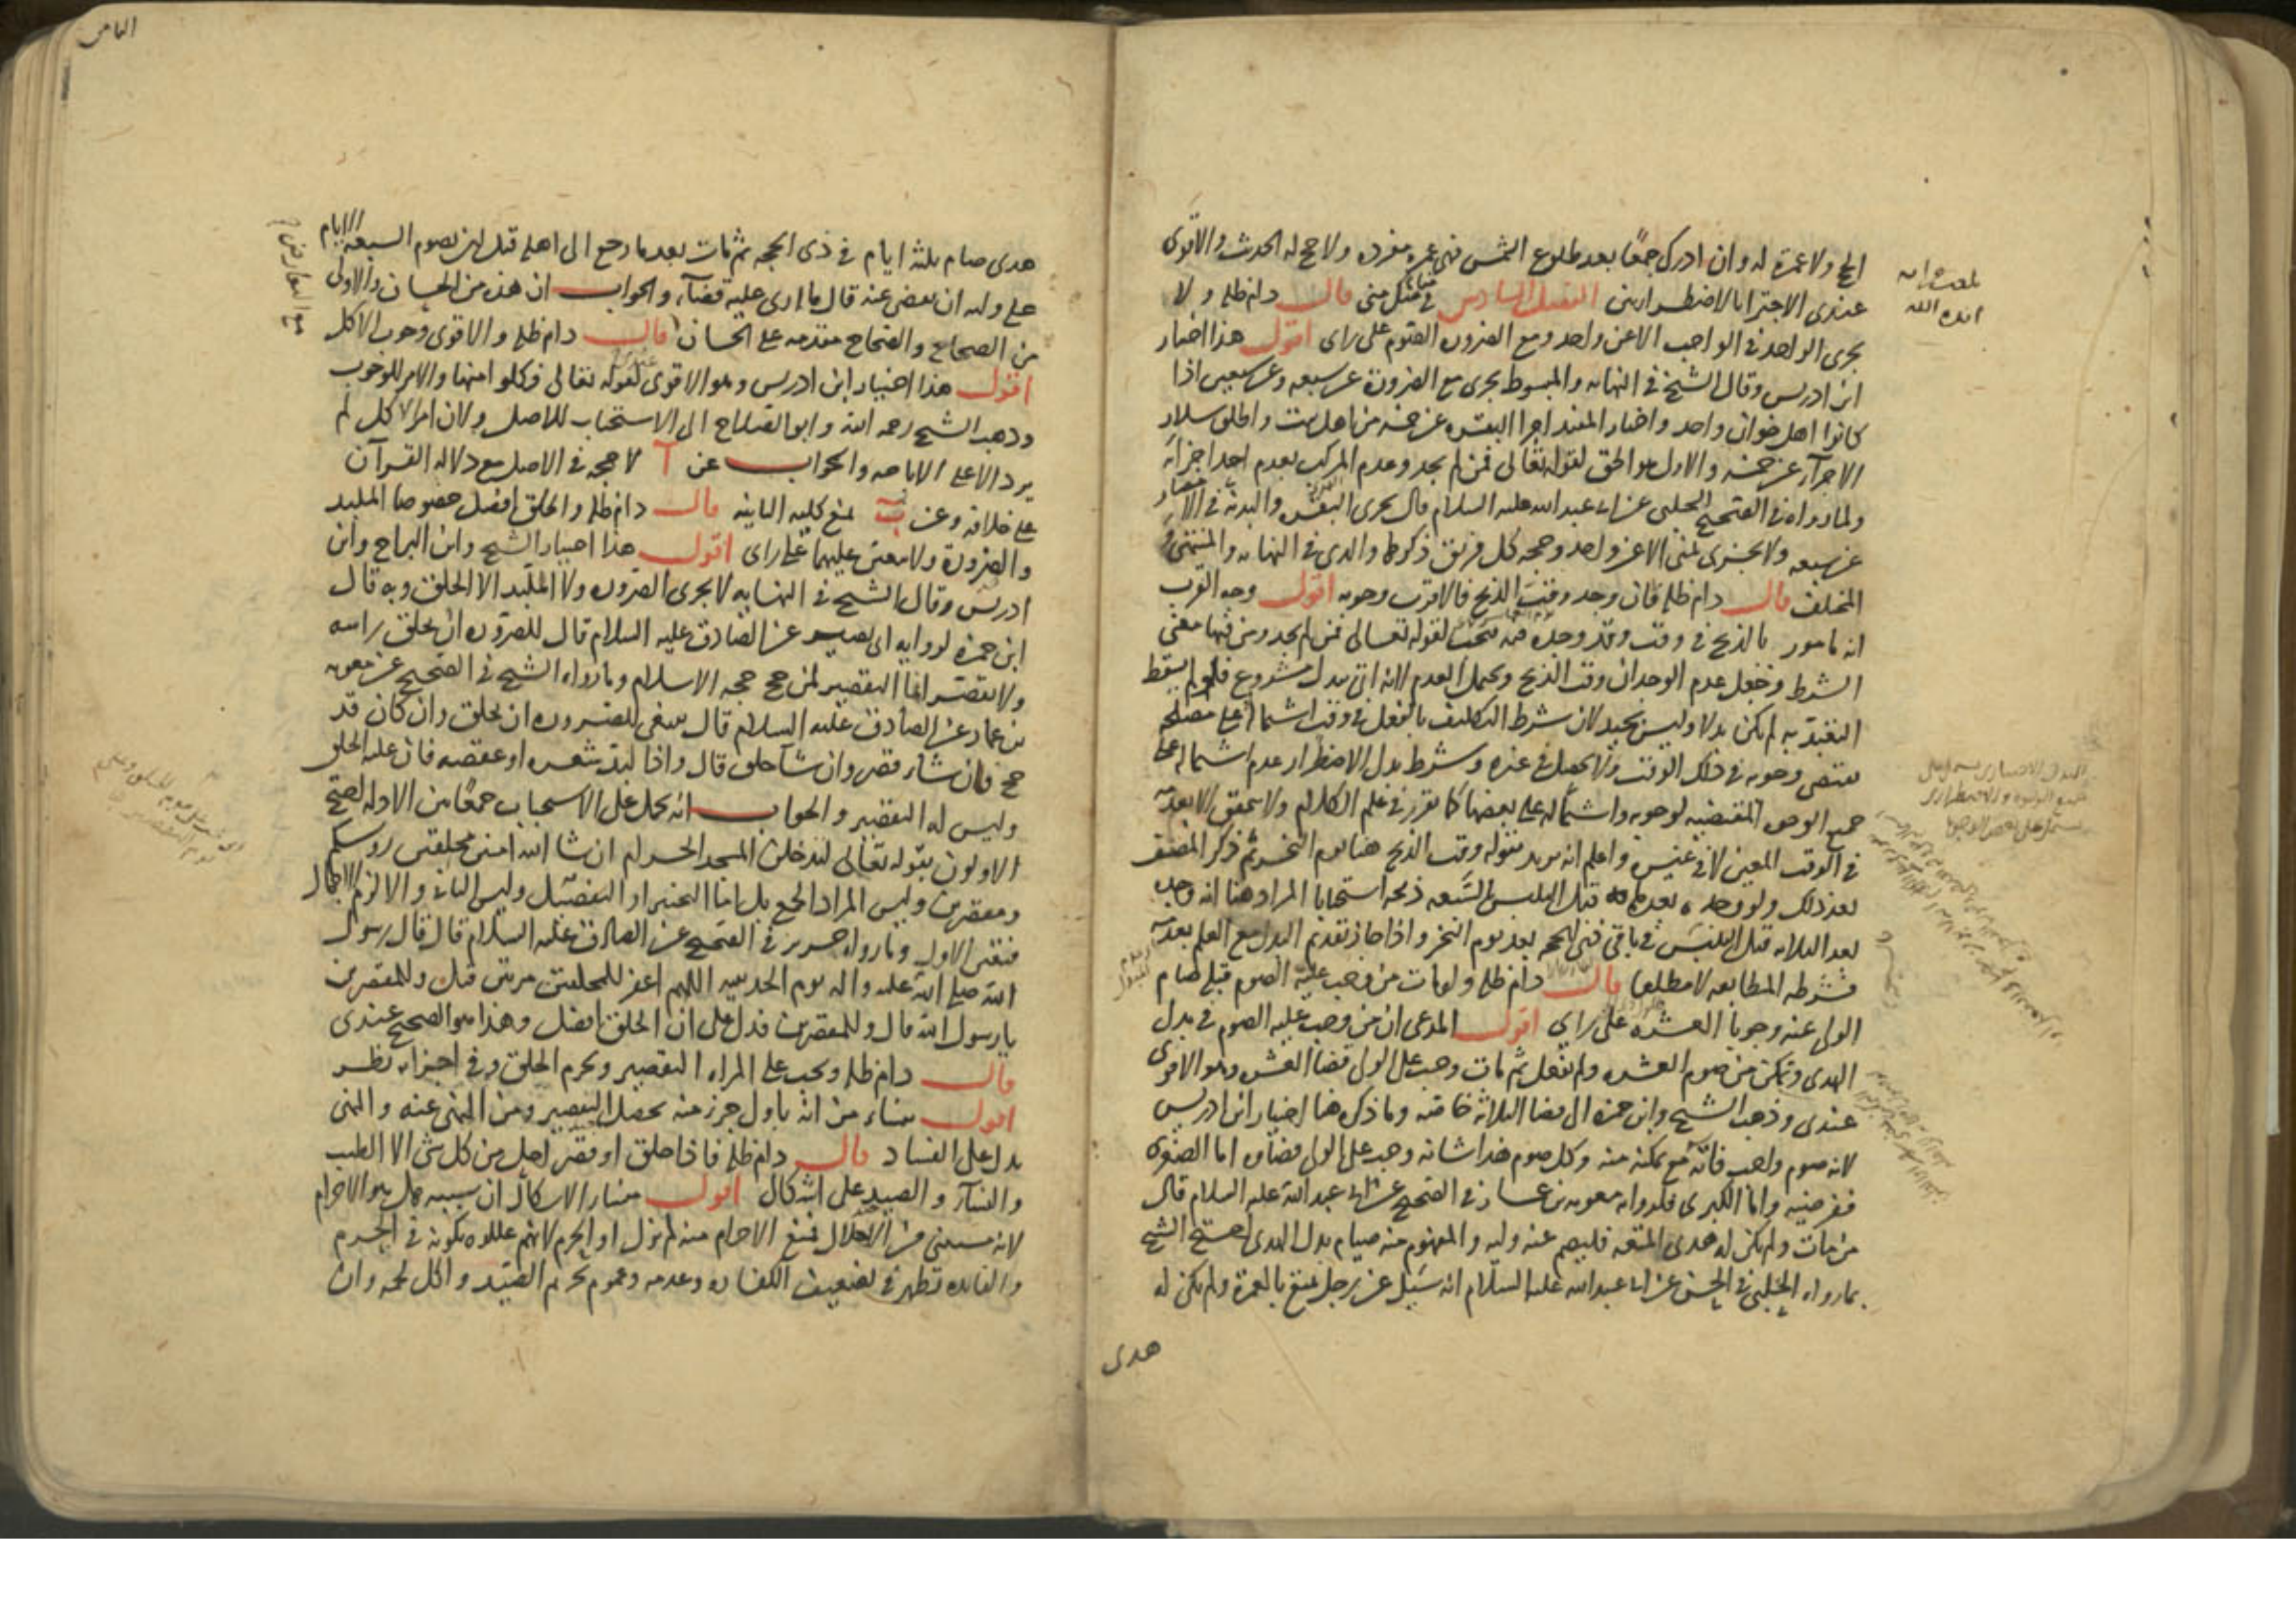 الحج ولا عمرة له وان ادرك جمعا بعد طلوع الشمس فهى عمرة مفرده ولا حج له الحدث والاقوى
عندى الاجتزا بالاضطرارين الفصل السادس فى مناسك منى قال دام ظله ولا
يجزى الواحد فى الواجب الا عن واحد ومع الضرورة الصوم على راى اقول هذا اختيار
ابن ادريس وقال الشيخ فى النهايه والمبسوط يجزى مع الضرورة عن سبعه وعن سبعين اذا
كانوا اهل خوان واحد واختار المفيد اجزا البقره عن خمسه من اهل بيت واطلق سلار
الاجزآء عن خمسه والاول هو الحق لقوله تعالى فمن لم يجد وعدم المركب بعدم احد اجزائه
ولما رواه فى الصحيح الحلبى عن ابى عبد الله عليه السلام قال يجزى البقره والبدنه فى الامصار
عن سبعه ولا يجزى بمنى الا عن واحد وحجه كل فريق ذكرها والدى فى النهايه والمنتهى و
المختلف قال دام ظله فان وجد وقت الذبح فالاقرب وجوبه اقول وجه القرب
انه مامور بالذبح فى وقت وقد وجده فيه لقوله تعالى فمن لم يجد ومن فيها معنى
الشرط وجعل عدم الوجدان وقت الذبح ويحتمل العدم لانه اتى ببدل مشروع فلو لم يسقط
التعبد به لم يكن بدلا وليس بجيد لان شرط التكليف بالفعل فى وقت اشتماله على مصلحة
يقتضى وجوبه فى ذلك الوقت ولا يحصل فى غيره وشرط بدل الاضطرار عدم اشتماله على
جميع الوجوه المقتضيه لوجوبه واشتماله على بعضها كما تقرر فى علم الكلام ولا يتحقق الا بعدمه
فى الوقت المعين لا فى غيره واعلم انه يريد بقوله وقت الذبح هنا يوم النحر ثم ذكر المصنف
بعد ذلك ولو وجده بعدها قبل التلبس بالسبعه ذبحه استحبابا المراد هنا انه وجده
بعد الثلاثه قبل التلبس فى باقى ذى الحجه بعد يوم النحر واذا جاز تقديم البدل مع العلم بعدمه
فشرطه المطابقه لا مطلقا قال دام ظله ولو مات من وجب عليه الصوم قبله صام
الولى عنه وجوبا العشره على راى اقول المدعى ان من وجب عليه الصوم فى بدل
الهدى وتمكن من صوم العشره ولم يفعل ثم مات وجب على الولى قضا العشره وهو الاقوى
عندى وذهب الشيخ وابن حمزه الى قضا الثلاثه خاصه وما ذكره هنا اختيار ابن ادريس
لانه صوم واجب فاته مع تمكنه منه وكل صوم هذا شانه وجب على الولى قضاه اما الصغرى
ففرضيه واما الكبرى فلما رواه معويه بن عمار فى الصحيح عن ابى عبد الله عليه السلام قال
من مات ولم يكن له هدى المتعه فليصم عنه وليه والمفهوم منه صيام بدل الهدى احتج الشيخ
بما رواه الحلبى فى الحسن عن ابى عبد الله عليه السلام انه سئل عن رجل تمتع بالعمرة ولم يكن له
هدى
بلغت قراءه
ايده الله
هدى صام ثلثه ايام فى ذى الحجه ثم مات بعد ما رجع الى اهله قبل ان يصوم السبعه الايام
على وليه ان يقضى عنه قال ما ارى عليه قضآء والجواب ان هذه من الحسان والاولى
من الصحاح والصحاح متقدمه على الحسان قال دام ظله والاقوى وجوب الاكل
اقول هذا اختيار ابن ادريس وهو الاقوى لقوله تعالى فكلوا منها والامر للوجوب
وذهب الشيخ رحمه الله وابو الصلاح الى الاستحباب للاصل ولان امر الاكل لم
يرد الا على الاباحه والجواب عن آ لا حجه فى الاصل مع دلاله القرآن
على خلافه وعن ب بمنع كليه الثانيه قال دام ظله والحلق افضل خصوصا الملبد
والصرورة ولا يتعين عليهما على راى اقول هذا اختيار الشيخ وابن البراج وابن
ادريس وقال الشيخ فى النهايه لا يجزى الصروره ولا الملبد الا الحلق وبه قال
ابن حمزه لروايه ابى بصير عن الصادق عليه السلام قال للصروره ان يحلق راسه
ولا يقصر انما التقصير لمن حج حجه الاسلام وما رواه الشيخ فى الصحيح عن معويه
بن عمار عن الصادق عليه السلام قال ينبغى للصروره ان يحلق وان كان قد
حج فان شاء قصر وان شآ حلق قال واذا لبد شعره او عقصه فان عليه الحلق
وليس له التقصير والجواب انه يحمل على الاستحباب جمعا بين الادله احتج
الاولون بقوله تعالى لتدخلن المسجد الحرام ان شا الله امنين محلقين روسكم
ومقصرين وليس المراد الجمع بل اما التخيير او التفصيل وليس الثانى والا لزم الاجمال
فتعين الاول وما رواه حريز فى الصحيح عن الصادق عليه السلام قال قال رسول
الله صلى الله عليه واله يوم الحديبيه اللهم اغفر للمحلقين مرتين قيل وللمقصرين
يا رسول الله قال وللمقصرين فدل على ان الحلق افضل وهذا هو الصحيح عندى
قال دام ظله ويجب على المراه التقصير ويحرم الحلق وفى اجزائه نظر
اقول ينشاء من انه باول جزء منه يحصل التقصير ومن النهى عنه والنهى
يدل على الفساد قال دام ظله فاذا حلق او قصر احل من كل شى الا الطيب
والنسآء والصيد على اشكال اقول منشاء الاشكال ان سببه هل هو الاحرام
لانه مستثنى من الاحلال فمنع الاحرام منه لم يزل او الحرم لانهم عللوه بكونه فى الحرم
والفايده تظهر فى تضعيف الكفاره وعدمه وعموم تحريم الصيد واكل لحمه وان
الثامن